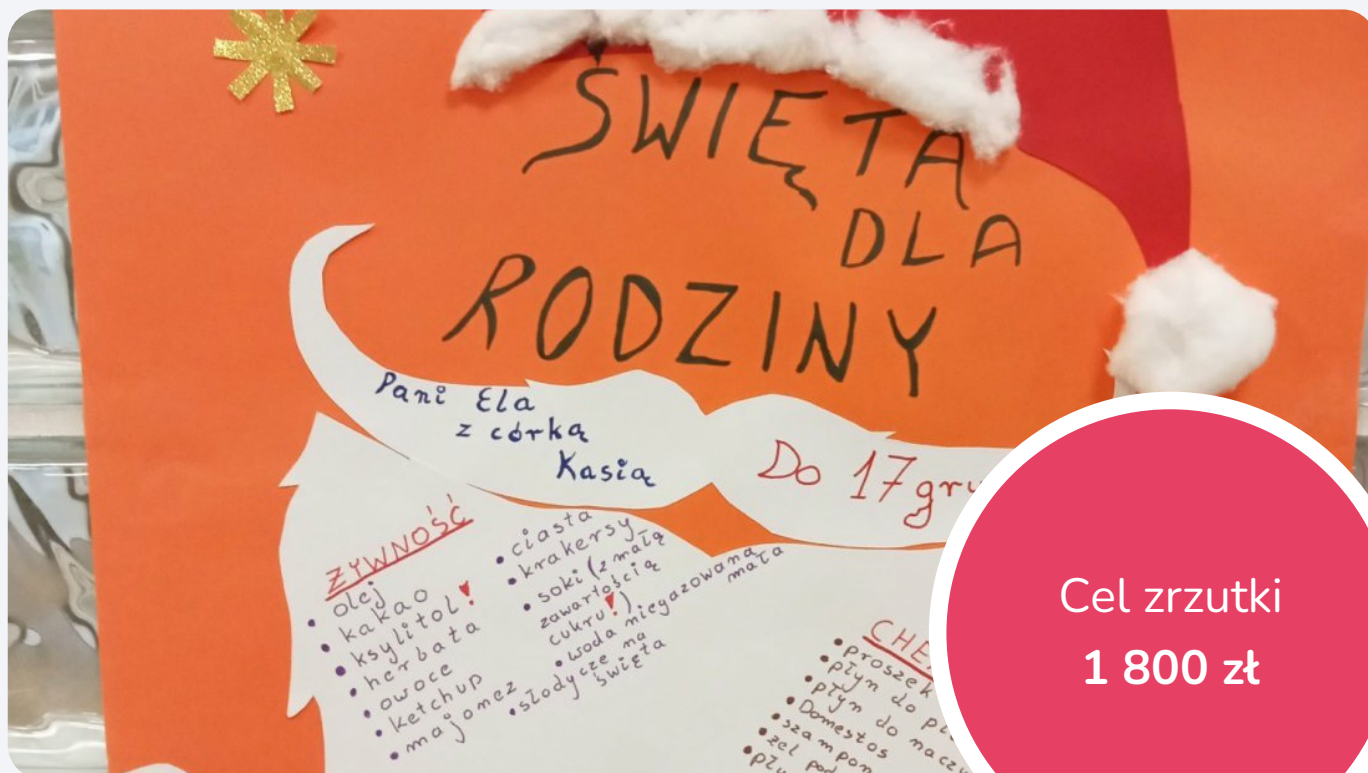 ŚWIĘTA
DLA
RODZINY
Pani Ela
z córką
Kasią
Do 17
ŻYWNOŚĆ
• olej
• kakao
• ksylitol!
• herbata
• owoce
• ketchup
• majonez
• ciasta
• krakersy
• soki (z małą
zawartością
cukru!)
• woda niegazowana
mała
• słodycze na
święta
• proszek
• płyn do
• płyn do
• Domestos
• szampon
• żel pod
Cel zrzutki
1 800 zł